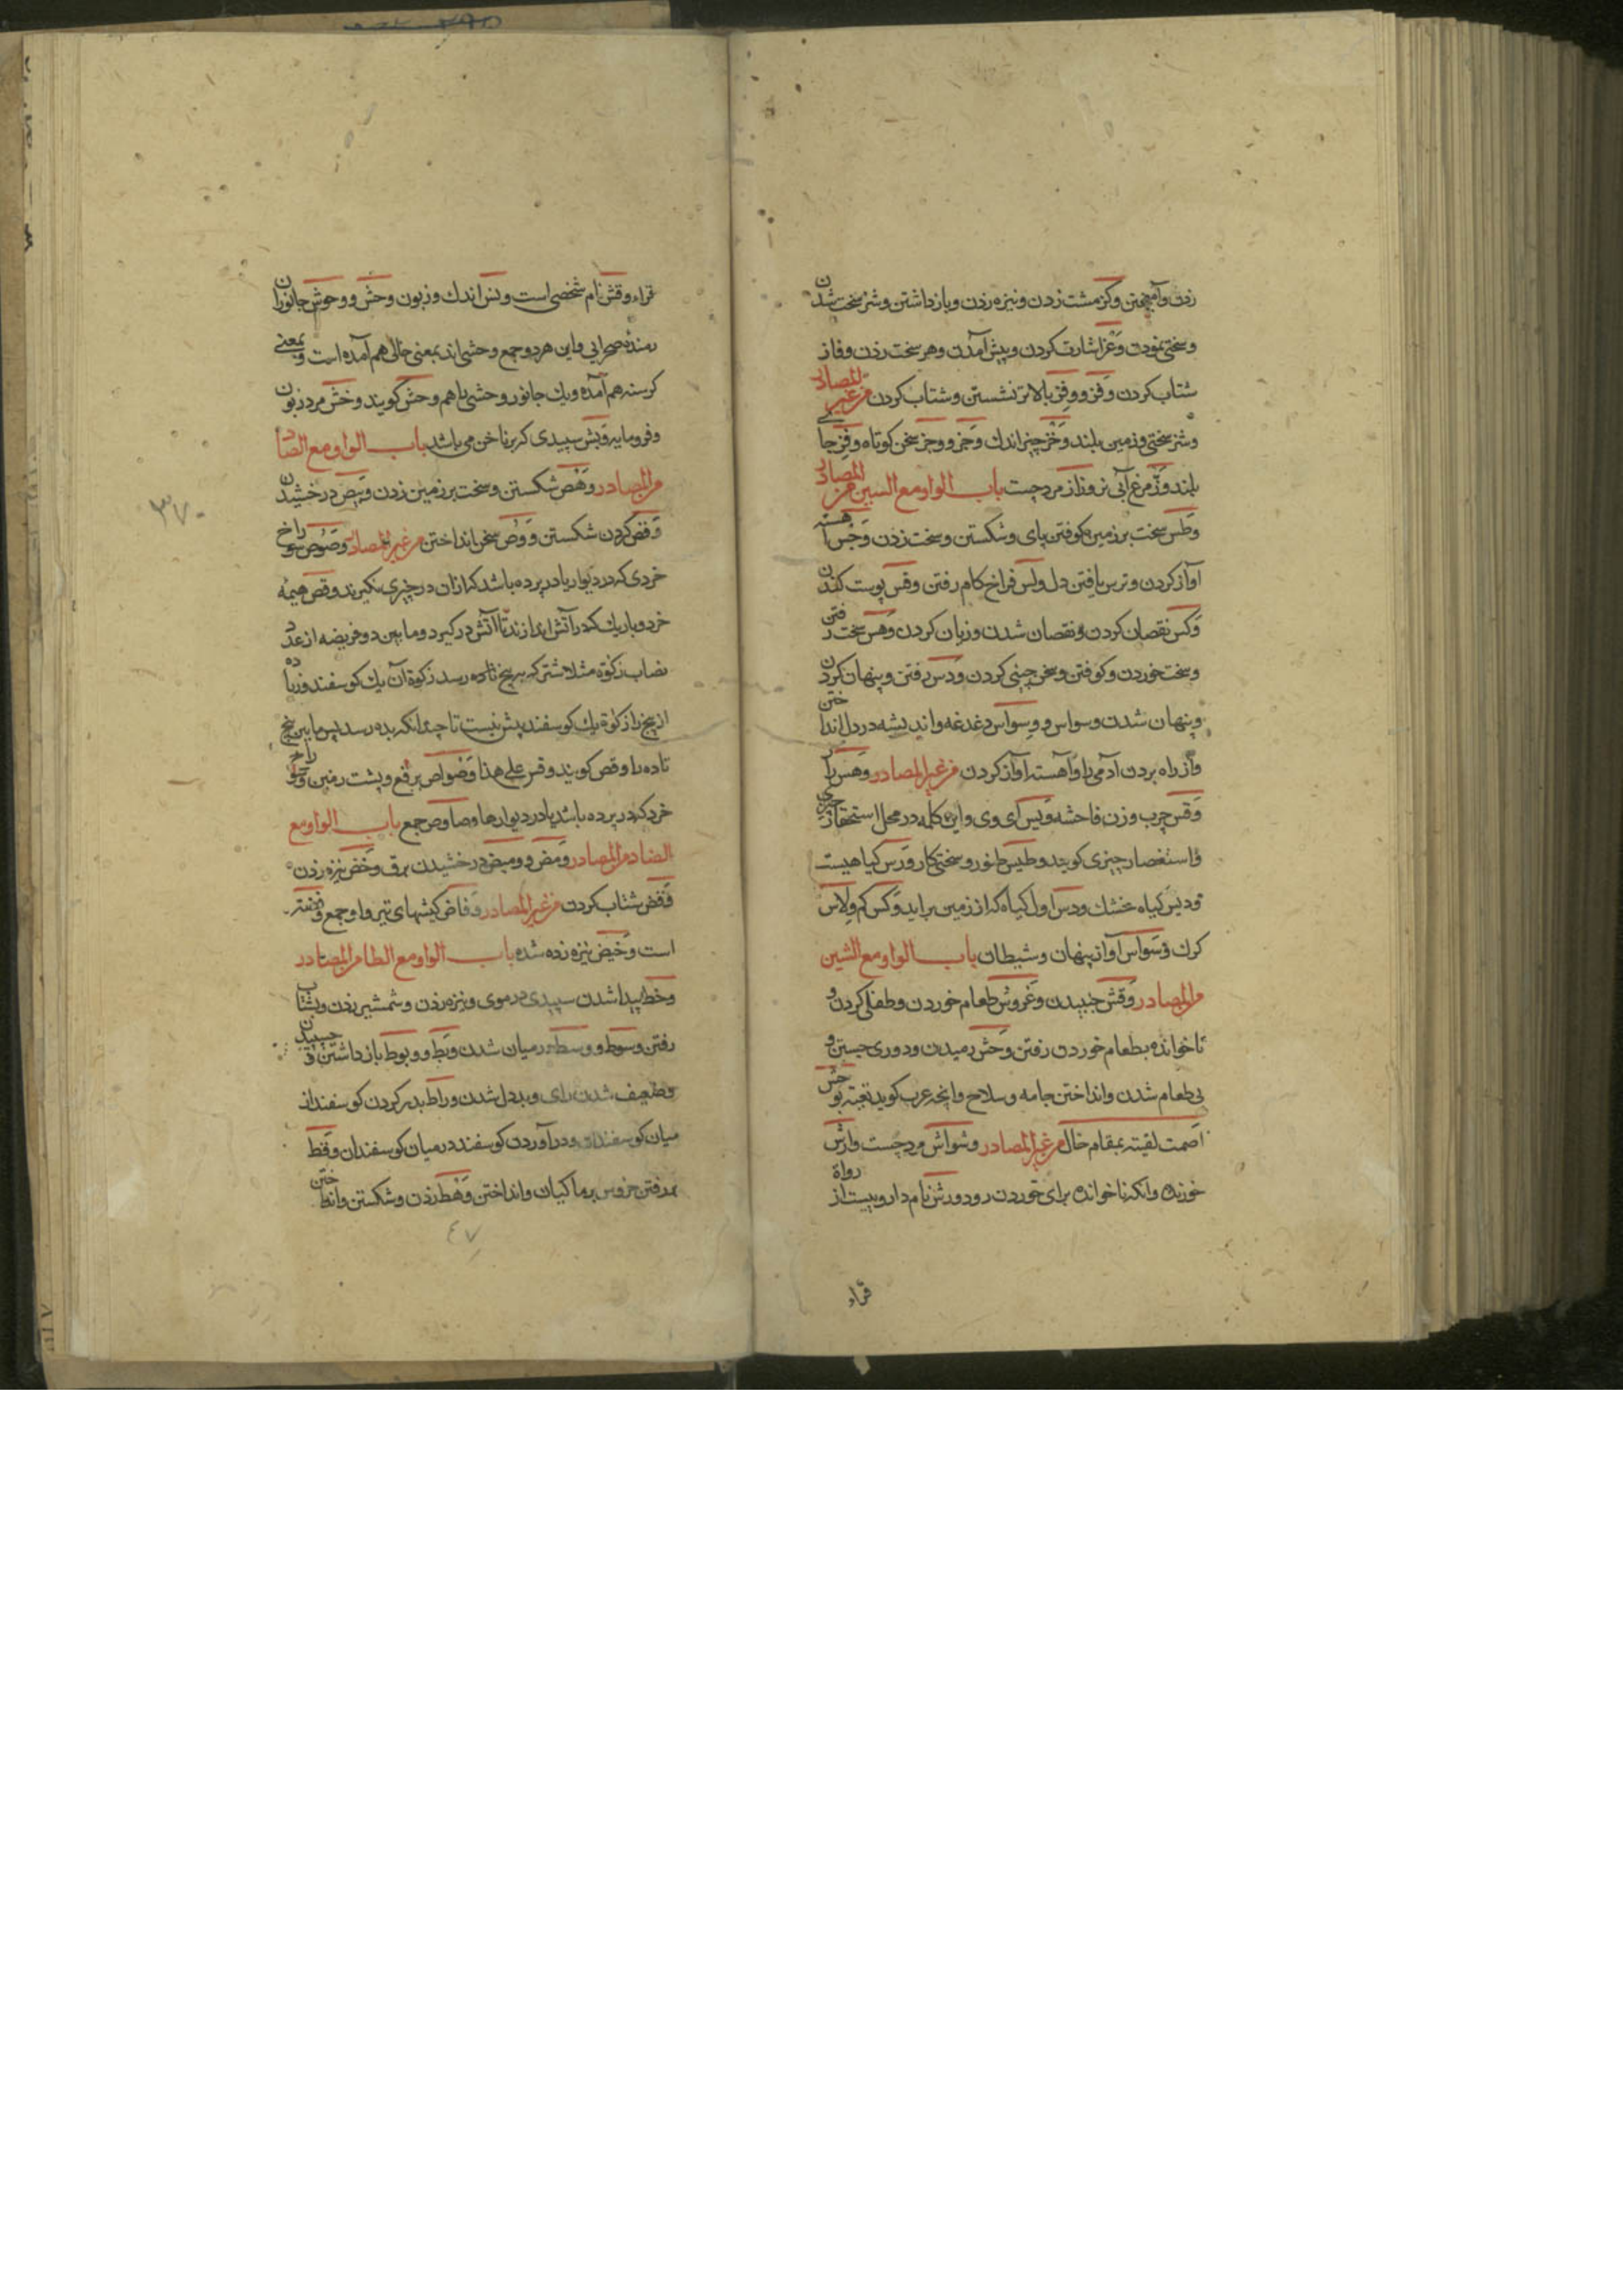 زدن وآمیختن وکز مشت زدن ونیزه زدن وبازداشتن وشز سخت شدن
وسختی نمودن وغز اشارت کردن وپیش آمدن وهز سخت زدن وفاز
شتاب کردن وفز ووفز بالاتر نشستن وشتاب کردن من غیر المصادر
وشز سختی وزمین بلند وخز چیز اندك وجز ووجز سخن کوتاه وفز جا
بلند وز مرغ آبی نر وزاز مرد چست باب الواو مع السین من المصادر
وطس سخت بر زمین کوفتن پای وشکستن وسخت زدن وجس آهسته
آواز کردن وترس یافتن دل ولس فراخ کام رفتن وقس پوست کندن
وکس نقصان کردن ونقصان شدن وزیان کردن وهس سخت رفتن
وسخت خوردن وکوفتن وسخن چینی کردن ودس رفتن وپنهان کردن
وپنهان شدن وسواس ووسواس دغدغه واندیشه در دل انداختن
واز راه بردن آدمی را وآهسته آواز کردن من غیر المصادر وهس
وقس جرب وزن فاحشه ویس ای وی واین کلمه در محل استحقار چیزی
واستغصار چیزی کویند وطیس تنور وسختی کار ورس کیاهیست
ودیس کیاه خشك ودس اول کیاه که از زمین براید وکس کم ولاس
کرك وسواس آواز پنهان وشیطان باب الواو مع الشین
من المصادر وقش جنبیدن وغروش طعام خوردن وطفلی کردن و
ناخوانده بطعام خوردن رفتن وحش رمیدن ودوری جستن و
بی طعام شدن وانداختن جامه وسلاح وانچه عرب کوید لقیته بوحش
اصمت لقیته بمقام خال من غیر المصادر وشواش مرد چست وارش
خورنده وانکه ناخوانده برای خوردن رود ورش نام داروییست از رواة
قراء
قراء وقش نام شخصی است ونس اندك وزبون وحش ووحوش جانوران
رمنده صحرایی واین هر دو جمع وحشی اند بمعنی خالی هم آمده است وبمعنی
کرسنه هم آمده ویك جانور وحشی را هم وحش کویند وخش مرد زبون
وفرومایه وبش سپیدی که بر ناخن می باشد باب الواو مع الصاد
من المصادر وهص شکستن وسخت بر زمین زدن وبیص درخشیدن
وقص کردن شکستن ووص سخن انداختن من غیر المصادر وصوص سوراخ
خردی که در دیوار یا در پرده باشد که ازان در چیزی نکیرند وقص هیمه
خرد وباریك که در آتش اندازند تا آتش در کیرد وما بین دو فریضه از عدد
نصاب زکوة مثلا شتر که به پنج تا ده رسد زکوة آن یك کوسفند وزیاده
از پنج را زکوة یك کوسفند پیش نیست تا چندانکه بده رسد پس ما بین پنج
تا ده را وقص کویند وقس علی هذا وضواص برقع وپشت زمین وسوراخ
خرد که در پرده باشد یا در دیوارها وصاوص جمع باب الواو مع
الضاد من المصادر ومض وومیض درخشیدن برق وخض نیزه زدن
وفض شتاب کردن من غیر المصادر وفاض کیشهای تیر واو جمع وفضته
است وخیض نیزه زده شده باب الواو مع الطا من المصادر
وخط پیدا شدن سپیدی در موی ونیزه زدن وشمشیر زدن وبشتاب
رفتن وسوط ووسط در میان شدن وبط ووبوط بازداشتن وچسپیدن
وضعیف شدن رای وبددل شدن وراط بدر کردن کوسفند از
میان کوسفندان ودر آوردن کوسفند در میان کوسفندان وقط
بررفتن خروس بر ماکیان وانداختن وهط زدن وشکستن وانداختن
۳۷۰
۴۷